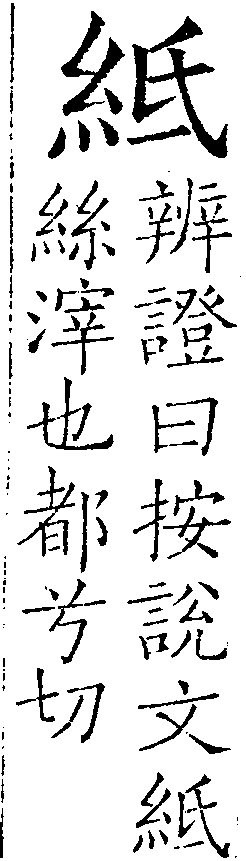 𥿄
辨證曰按說文𥿄
絲滓也都兮切